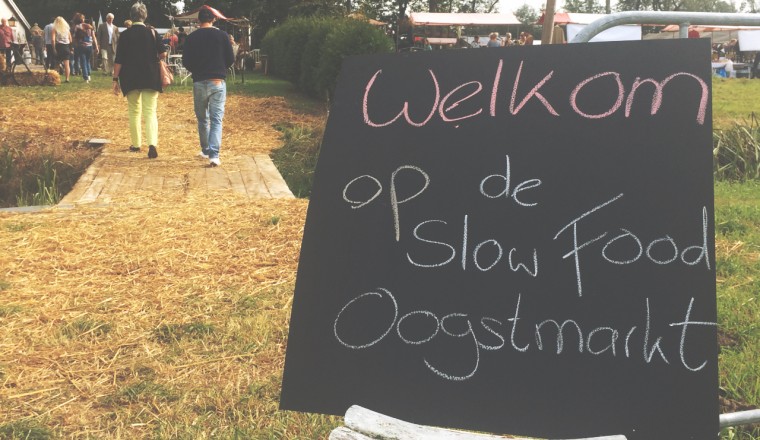 Welkom
op de
Slow Food
Oogstmarkt